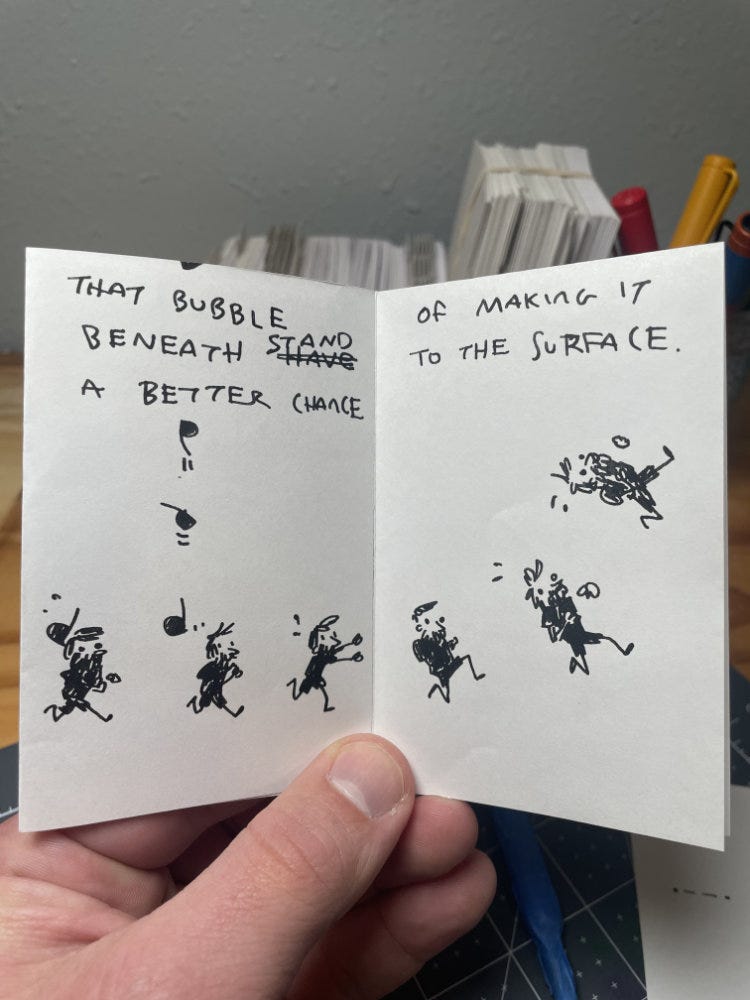 THAT BUBBLE
BENEATH STAND
HAVE
A BETTER CHANCE
OF MAKING IT
TO THE SURFACE.